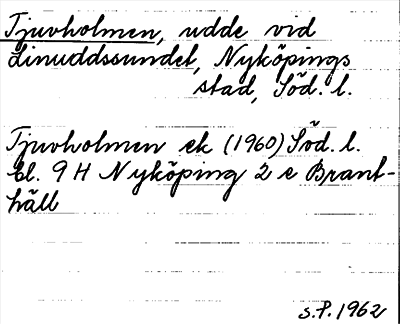 Tjuvholmen, udde vid
Linuddssundet, Nyköpings
stad, Söd. l.
Tjuvholmen ek (1960) Söd. l.
bl. 9 H Nyköping 2 e Brant-
häll
S.P. 1962